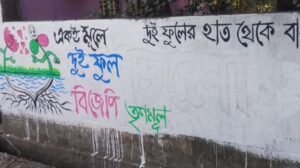 একই মূলে
দুই ফুল
বিজেপি তৃণমূল
দুই ফুলের হাত থেকে